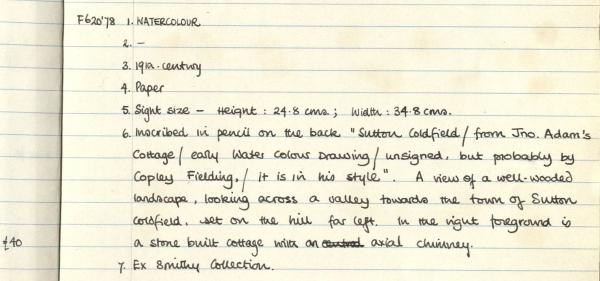 F620'78 1. WATERCOLOUR
2. —
3. 19th. century
4. Paper
5. Sight size – Height : 24.8 cms. ; Width : 34.8 cms.
6. Inscribed in pencil on the back "Sutton Coldfield / from Jno. Adam's
Cottage / early Water Colour Drawing / unsigned, but probably by
Copley Fielding, / it is in his style". A view of a well-wooded
landscape, looking across a valley towards the town of Sutton
Coldfield, set on the hill far left. In the right foreground is
£40 a stone built cottage with an central axial chimney.
7. Ex Smithy Collection.